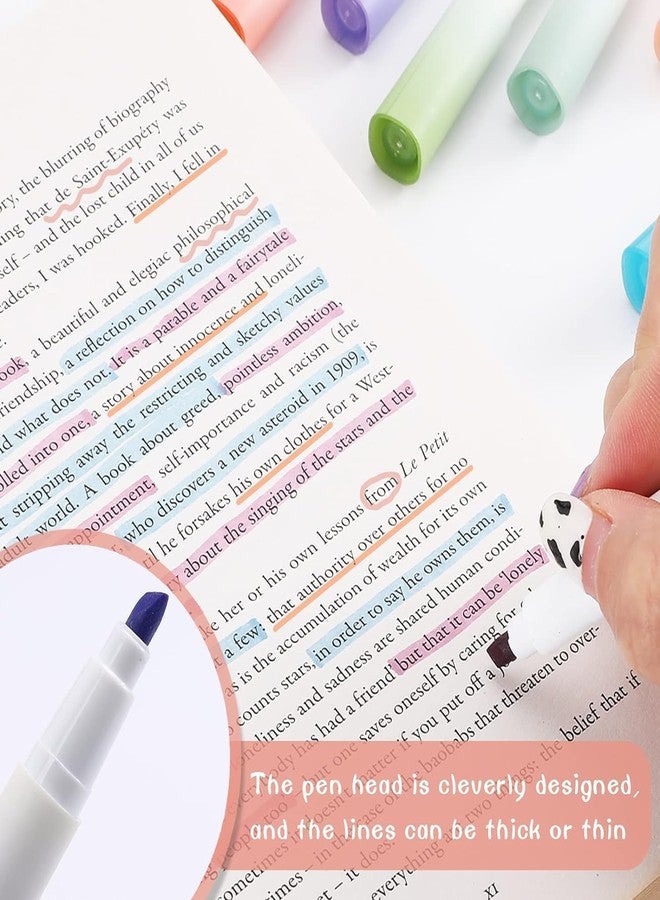 ory, the blurring of biography
ning that de Saint-Exupéry was
self – and the lost child in all of us
eaders, I was hooked. Finally, I fell in
e.
ook, a beautiful and elegiac philosophical
friendship, a reflection on how to distinguish
d what does not. It is a parable and a fairytale
olled into one, a story about innocence and loneli-
t stripping away the restricting and sketchy values
adult world. A book about greed, pointless ambition,
appointment, self-importance and racism (the
who discovers a new asteroid in 1909, is
til he forsakes his own clothes for a West-
y about the singing of the stars and the
ke her or his own lessons from Le Petit
t a few: that authority over others for no
as is the accumulation of wealth for its own
counts stars, in order to say he owns them, is
loneliness and sadness are shared human condi-
has had a friend but that it can be 'lonely
but one saves oneself by caring for
matter if you put off a
in the case of the baobabs that threaten to over-
two things: the belief that if
sometimes
times –
et – it does.
everything
XI
The pen head is cleverly designed,
and the lines can be thick or thin